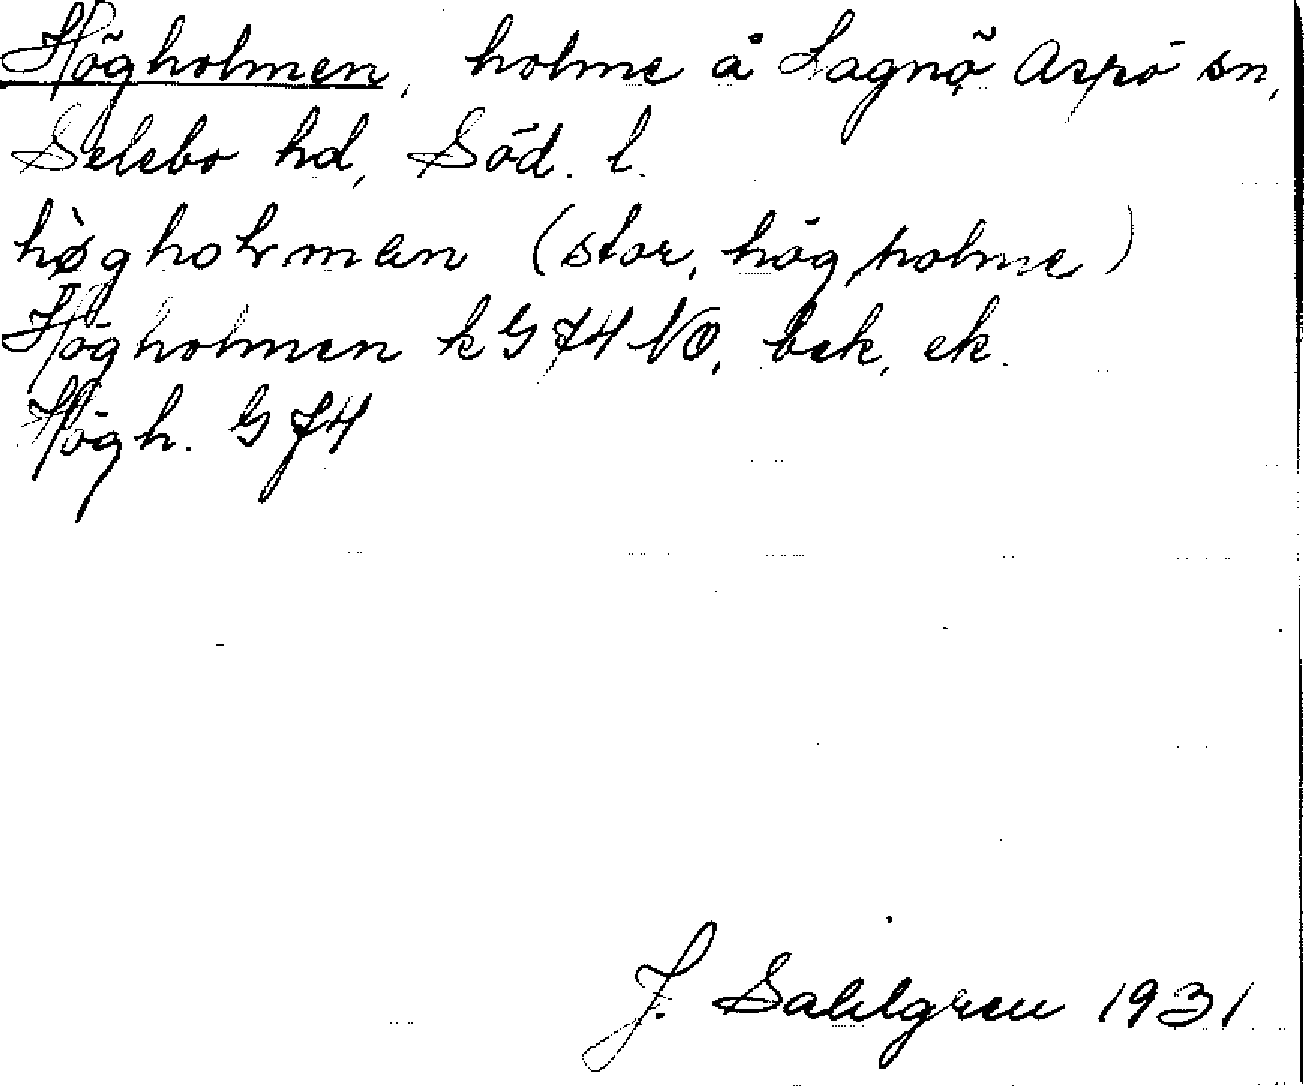 Högholmen, holme å Lagnö Aspö sn,
Selebo hd, Söd. l.
hø̀gholman (stor, hög holme)
Högholmen k G J4 NO, bek, ek.
Högh. G J4
J. Sahlgren 1931